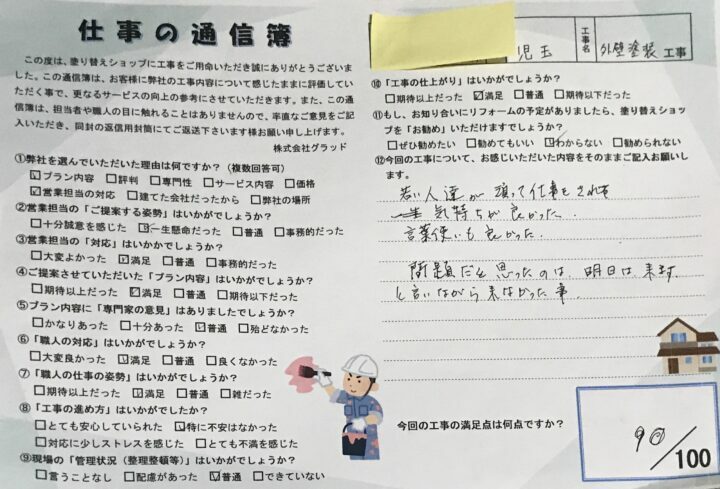 仕事の通信簿
この度は、塗り替えショップに工事をご用命いただき誠にありがとうございま
した。この通信簿は、お客様に弊社の工事内容について感じたままに評価してい
ただく事で、更なるサービスの向上の参考にさせていただきます。また、この通
信簿は、担当者や職人の目に触れることはありませんので、率直なご意見をご記
入いただき、同封の返信用封筒にてご返送下さいます様お願い申し上げます。
株式会社グラッド
①弊社を選んでいただいた理由は何ですか?(複数回答可)
☑プラン内容 □評判 □専門性 □サービス内容 □価格
☑営業担当の対応 □建てた会社だったから □弊社の場所
②営業担当の「ご提案する姿勢」はいかがでしょうか?
□十分誠意を感じた ☑一生懸命だった □普通 □事務的だった
③営業担当の「対応」はいかかでしょうか?
□大変よかった ☑満足 □普通 □事務的だった
④ご提案させていただいた「プラン内容」はいかがでしょうか?
□期待以上だった ☑満足 □普通 □期待以下だった
⑤プラン内容に「専門家の意見」はありましたでしょうか?
□かなりあった □十分あった ☑普通 □殆どなかった
⑥「職人の対応」はいかがでしょうか?
□大変良かった ☑満足 □普通 □良くなかった
⑦「職人の仕事の姿勢」はいかがでしょうか?
□期待以上だった ☑満足 □普通 □雑だった
⑧「工事の進め方」はいかがでしたか?
□とても安心していられた ☑特に不安はなかった
□対応に少しストレスを感じた □とても不満を感じた
⑨現場の「管理状況(整理整頓等)」はいかがでしょうか?
□言うことなし □配慮があった ☑普通 □できていない
児玉 工事名 外壁塗装 工事
⑩「工事の仕上がり」はいかがでしょうか?
□期待以上だった ☑満足 □普通 □期待以下だった
⑪もし、お知り合いにリフォームの予定がありましたら、塗り替えショッ
プを「お勧め」いただけますでしょうか?
□ぜひ勧めたい □勧めてもいい ☑わからない □勧められない
⑫今回の工事について、お感じいただいた内容をそのままご記入お願いしま
す。
若い人達が頑って仕事をされて
気持ちが良かった.
言葉使いも良かった.
問題だと思ったのは 明日は来ます
と言いながら来なかった事.
今回の工事の満足点は何点ですか?
90/100